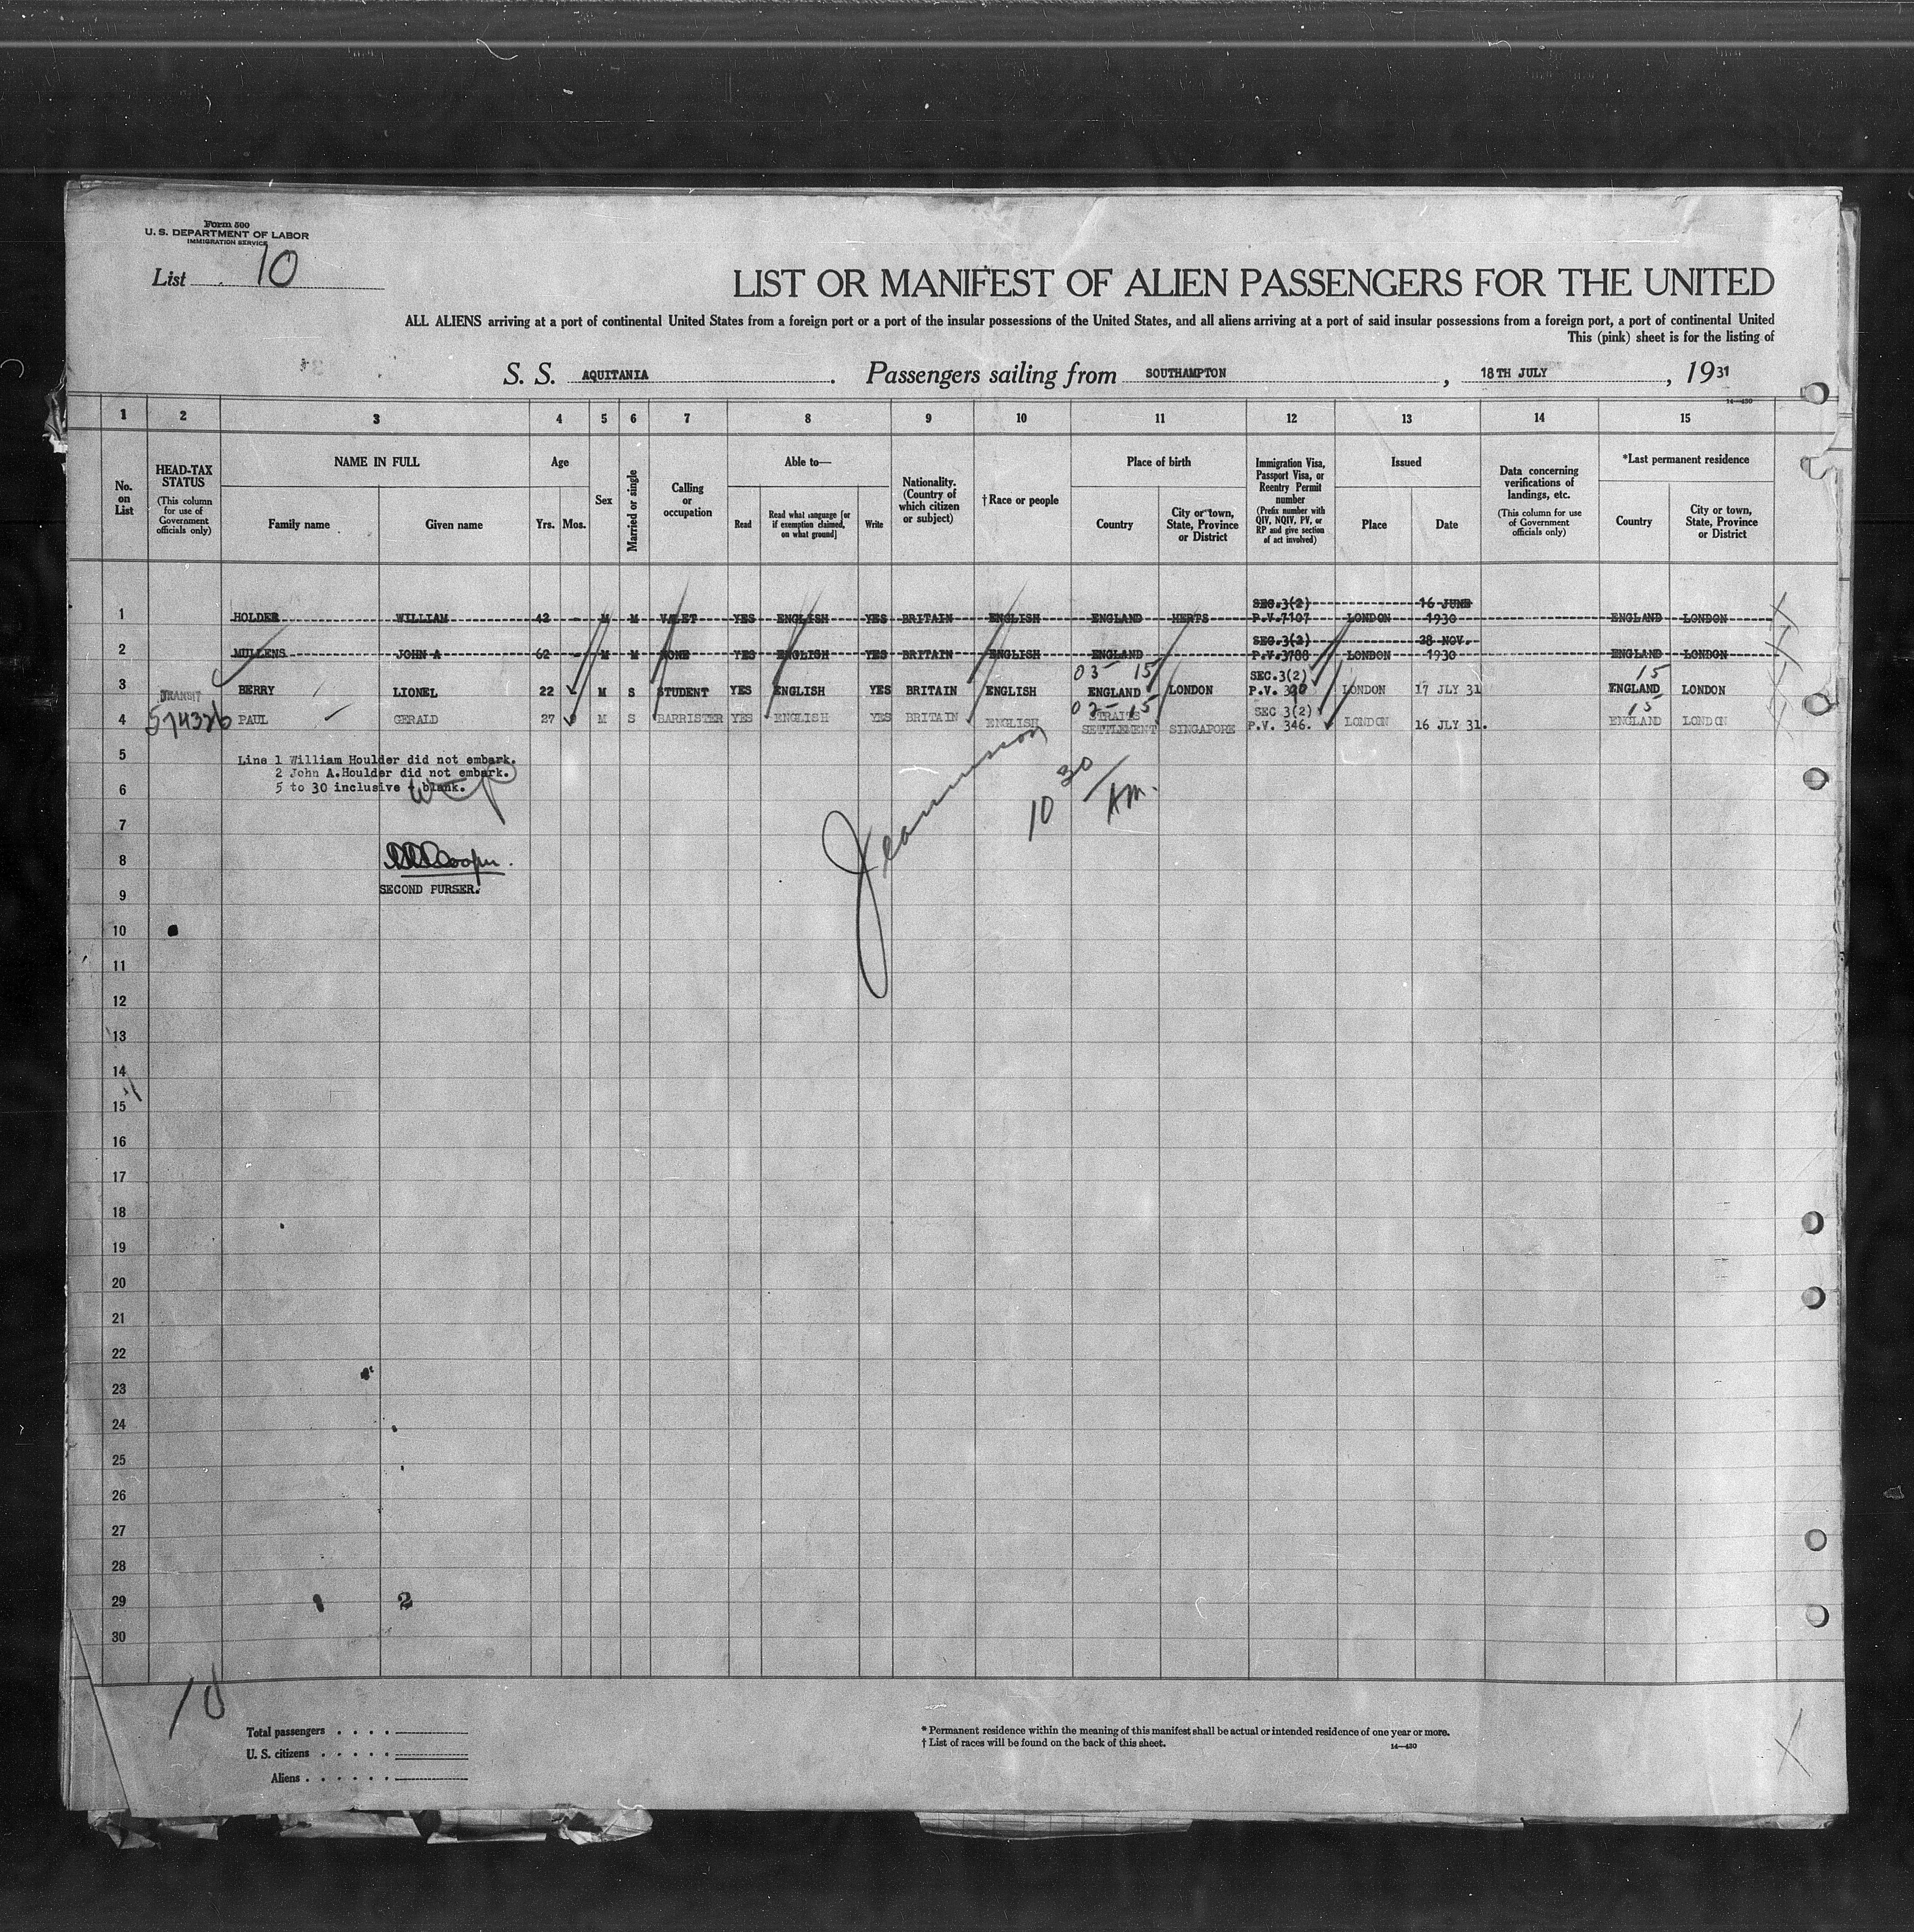 Form 500
U. S. DEPARTMENT OF LABOR
IMMIGRATION SERVICE
List 10
LIST OR MANIFEST OF ALIEN PASSENGERS FOR THE UNITED
ALL ALIENS arriving at a port of continental United States from a foreign port or a port of the insular possessions of the United States, and all aliens arriving at a port of said insular possessions from a foreign port, a port of continental United
This (pink) sheet is for the listing of
S. S. AQUITANIA. Passengers sailing from SOUTHAMPTON, 18TH JULY, 1931
14—430
1 2 3 4 5 6 7 8 9 10 11 12 13 14 15
No. on List
HEAD-TAX STATUS
(This column for use of Government officials only)
NAME IN FULL
Family name
Given name
Age
Yrs. Mos.
Sex
Married or single
Calling or occupation
Able to—
Read
Read what language [or if exemption claimed, on what ground]
Write
Nationality. (Country of which citizen or subject)
†Race or people
Place of birth
Country
City or town, State, Province or District
Immigration Visa, Passport Visa, or Reentry Permit number
(Prefix number with QIV, NQIV, PV, or RP and give section of act involved)
Issued
Place
Date
Data concerning verifications of landings, etc.
(This column for use of Government officials only)
*Last permanent residence
Country
City or town, State, Province or District
SEC.3(2) 16 JUNE
1 HOLDER WILLIAM 42 - M M VALET YES ENGLISH YES BRITAIN ENGLISH ENGLAND HERTS P.V.7107 LONDON 1930 ENGLAND LONDON
SEC.3(2) 28 NOV.
2 MULLENS JOHN A 62 - M M NONE YES ENGLISH YES BRITAIN ENGLISH ENGLAND P.V.3788 LONDON 1930 ENGLAND LONDON
03 15 SEC.3(2) 15
3 TRANSIT BERRY LIONEL 22 M S STUDENT YES ENGLISH YES BRITAIN ENGLISH ENGLAND LONDON P.V. LONDON 17 JLY 31 ENGLAND LONDON
02 15 SEC 3(2) 15
4 574326 PAUL GERALD 27 M S BARRISTER YES ENGLISH YES BRITAIN ENGLISH STRAITS SETTLEMENT SINGAPORE P.V. 346. LONDON 16 JLY 31. ENGLAND LONDON
5
Line 1 William Houlder did not embark.
2 John A.Houlder did not embark.
6
5 to 30 inclusive - blank.
10 30 AM.
7
8
Cooper.
SECOND PURSER.
9
10
11
12
13
14
15
16
17
18
19
20
21
22
23
24
25
26
27
28
29 2
30
10
Total passengers
U. S. citizens
Aliens
* Permanent residence within the meaning of this manifest shall be actual or intended residence of one year or more.
† List of races will be found on the back of this sheet.
14—430